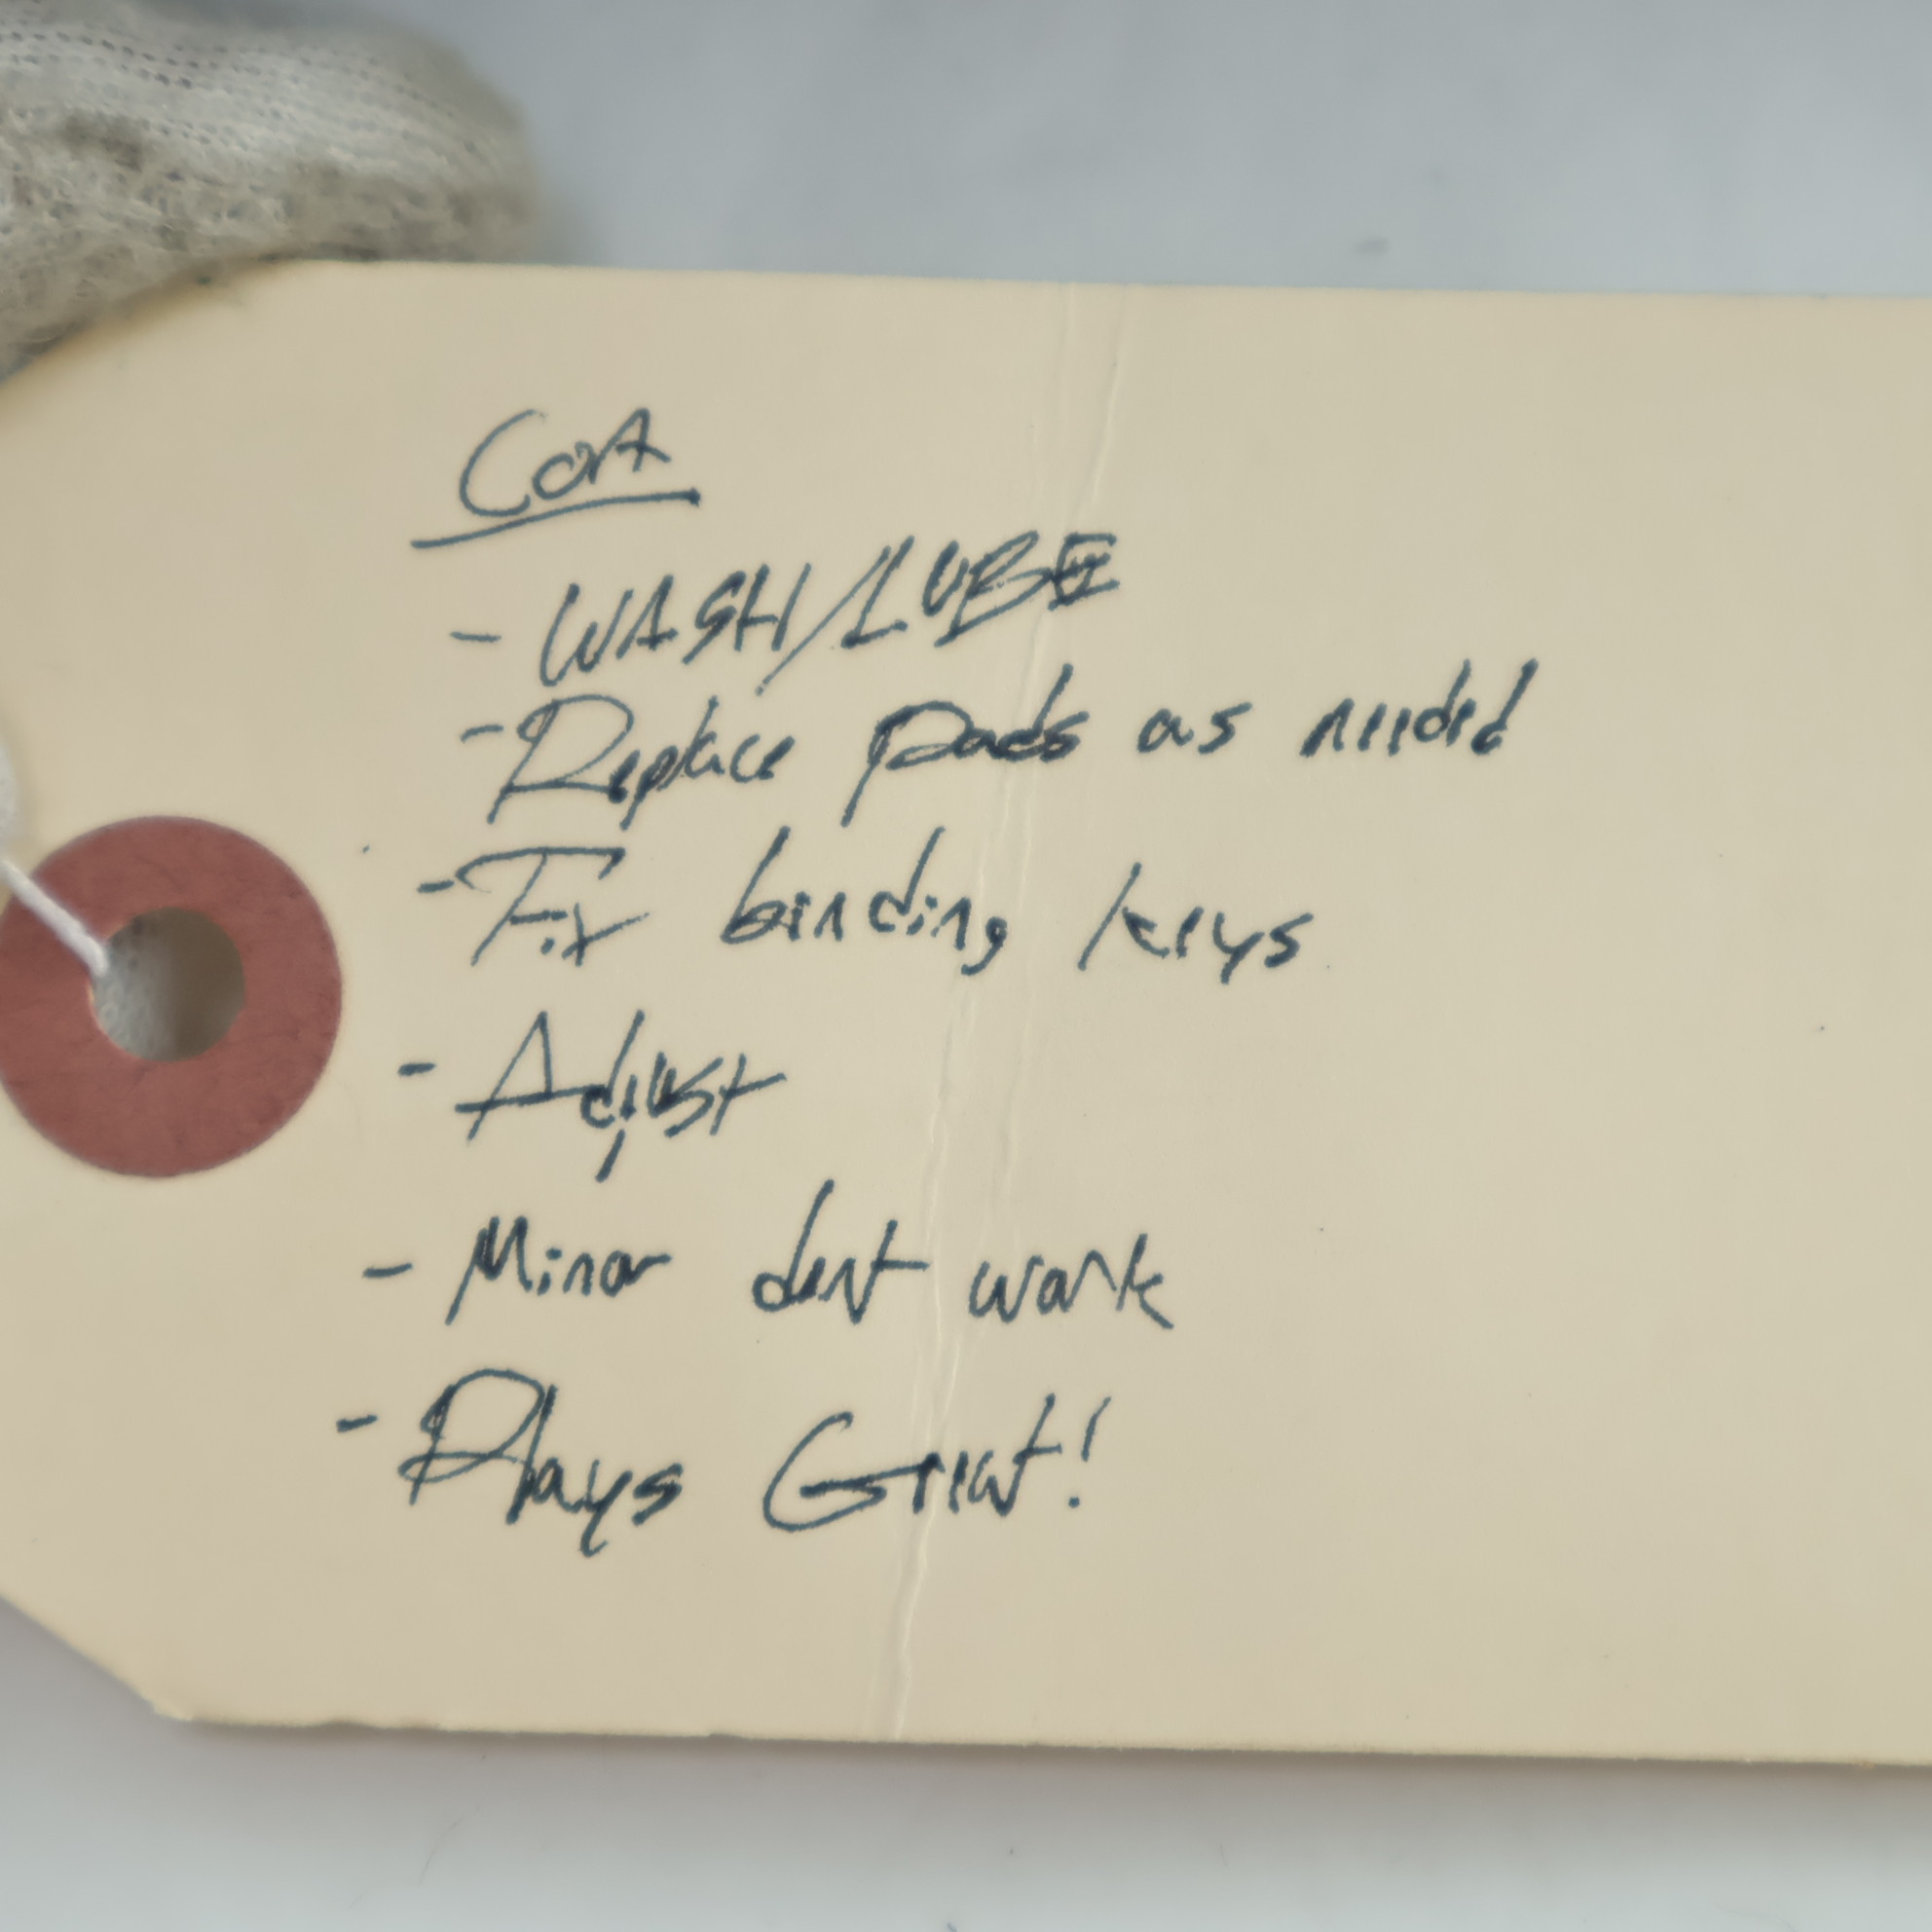 COA
- WASH/LUBE
- Replace pads as needed
- Fix binding keys
- Adjust
- Minor dent work
- Plays Great!